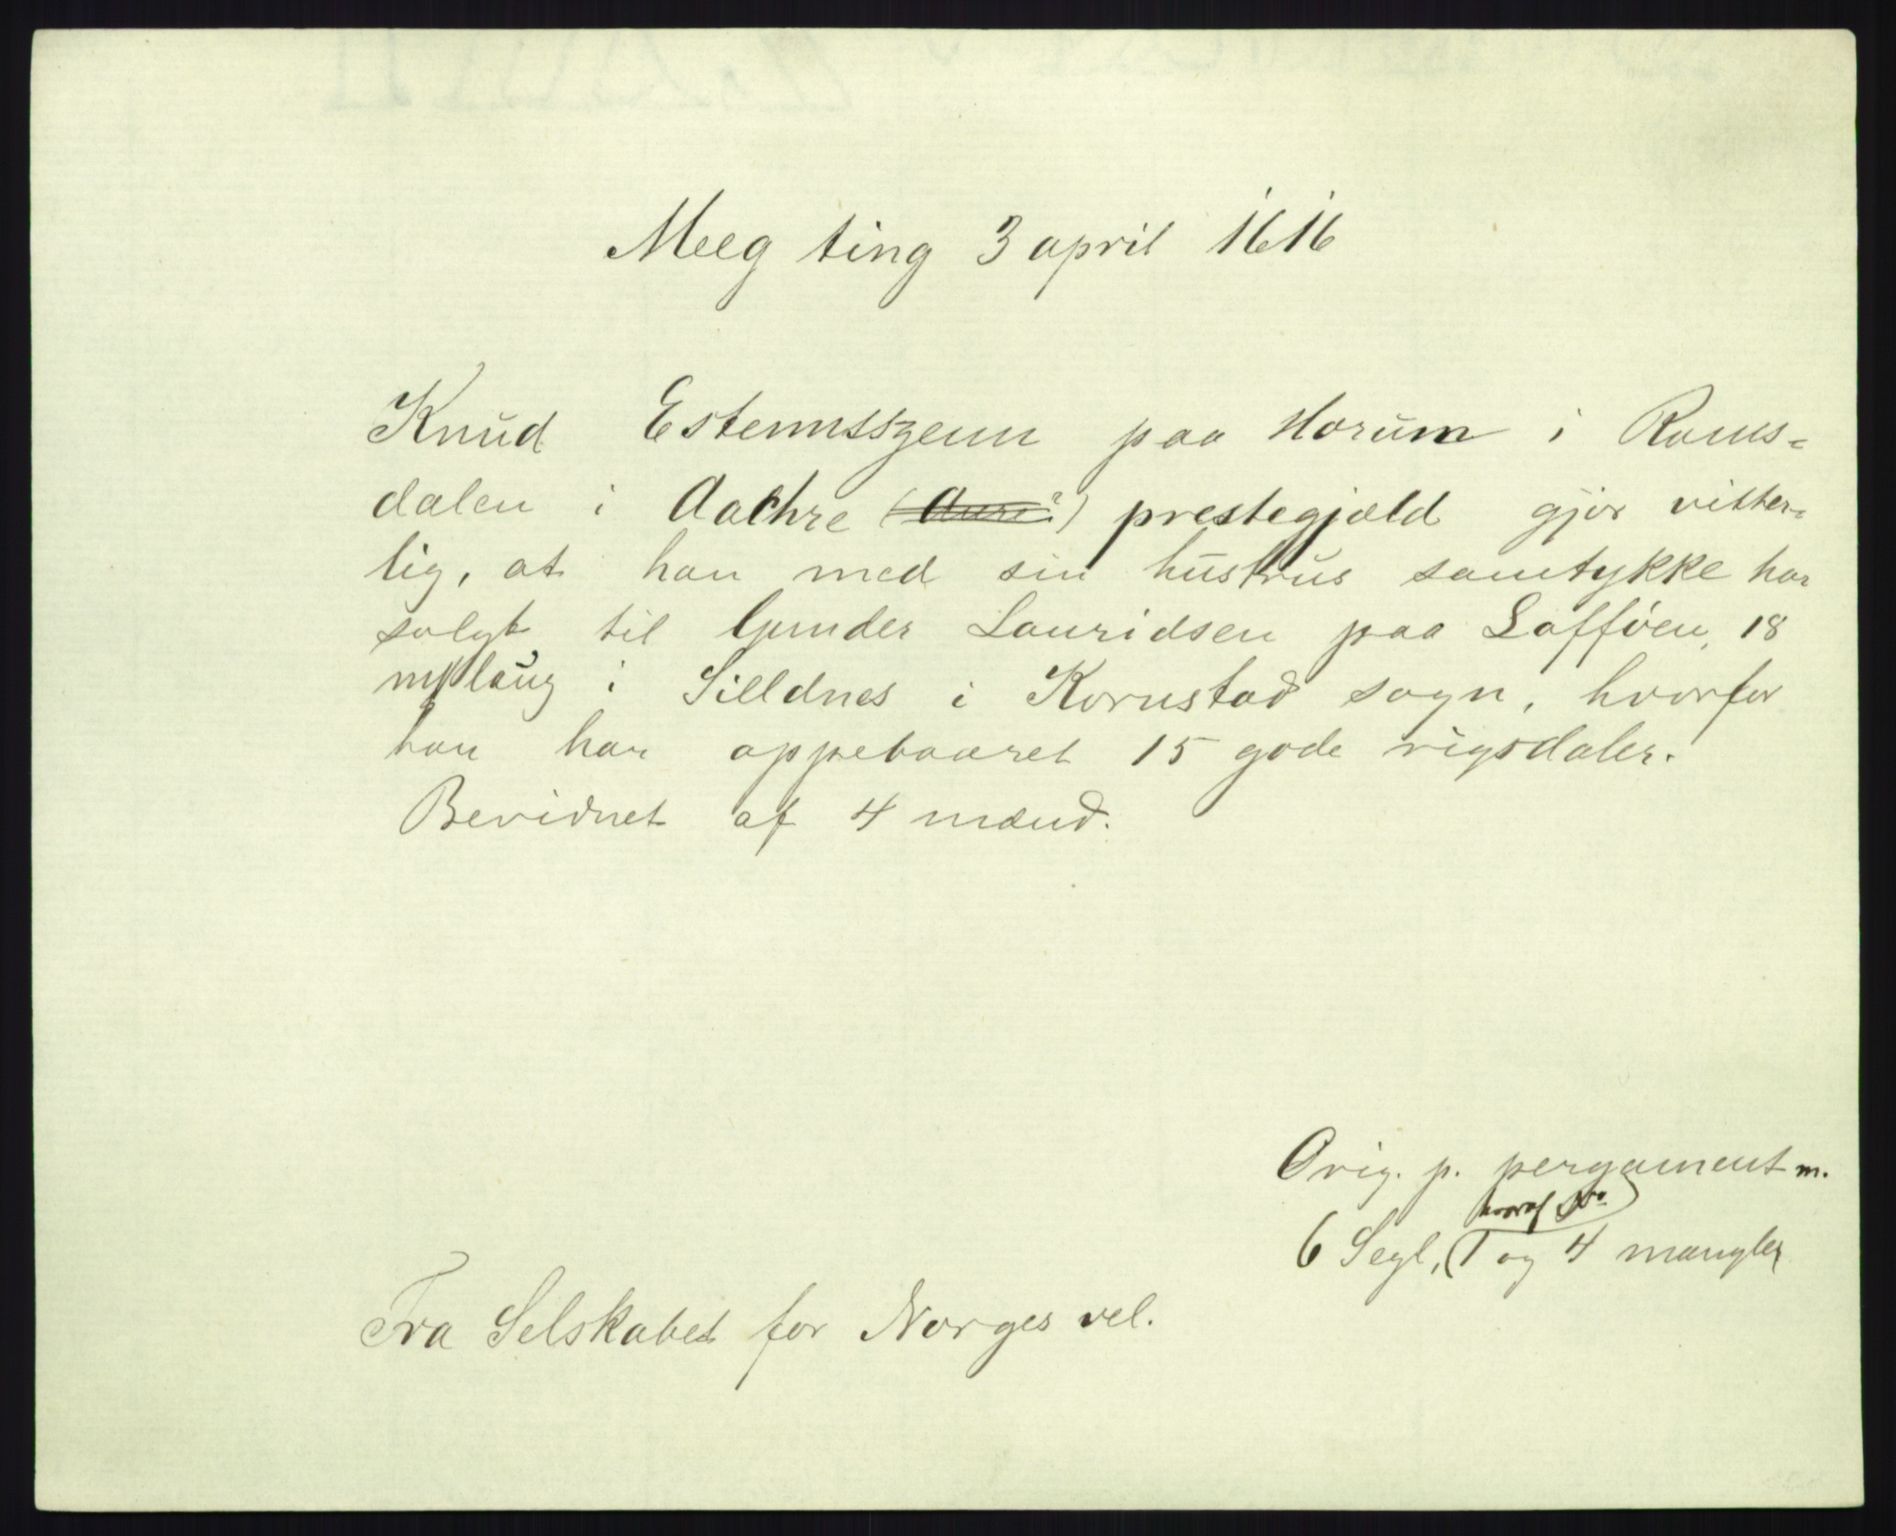 Meeg ting 3 april 1616
Knud Estennsszenn paa Horum i Roms=
dalen i Aachre (Aure?) prestegjæld gjør vitter=
lig, at han med sin hustrus samtykke har
solgt til Gunder Lauridsen paa Lafføen, 18
mk laug i Silldnes i Kornstad sogn, hvorfor
han har oppebaaret 15 gode rigsdaler.
Bevidnet af 4 mænd.
Orig. p. pergament m.
hvoraf No
6 Segl, (1 og 4 mangler
Fra Selskabet for Norges vel.